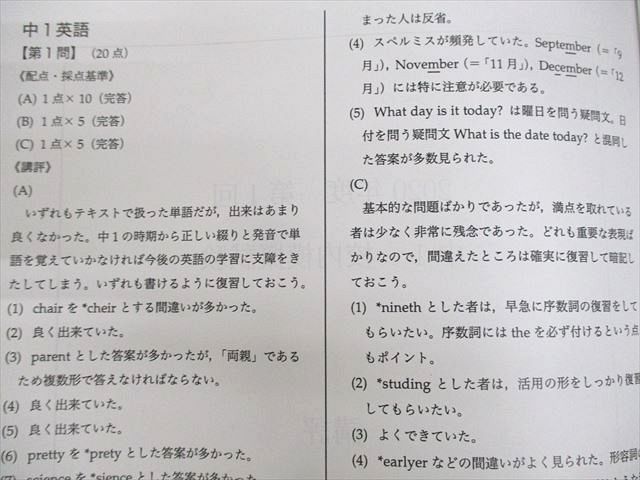 中1英語
【第1問】（20点）
《配点・採点基準》
(A) 1点×10（完答）
(B) 1点×5（完答）
(C) 1点×5（完答）
《講評》
(A)
いずれもテキストで扱った単語だが，出来はあまり
良くなかった。中1の時期から正しい綴りと発音で単
語を覚えていかなければ今後の英語の学習に支障をき
たしてしまう。いずれも書けるように復習しておこう。
(1) chair を *cheir とする間違いが多かった。
(2) 良く出来ていた。
(3) parent とした答案が多かったが，「両親」である
ため複数形で答えなければならない。
(4) 良く出来ていた。
(5) 良く出来ていた。
(6) pretty を *prety とした答案が多かった。
(7) science を *sience とした答案が多かった
まった人は反省。
(4) スペルミスが頻発していた。September（＝「9
月」），November（＝「11月」），December（＝「12
月」）には特に注意が必要である。
(5) What day is it today? は曜日を問う疑問文。日
付を問う疑問文 What is the date today? と混同し
た答案が多数見られた。
(C)
基本的な問題ばかりであったが，満点を取れている
者は少なく非常に残念であった。どれも重要な表現ば
かりなので，間違えたところは確実に復習して暗記し
ておこう。
(1) *nineth とした者は，早急に序数詞の復習をして
もらいたい。序数詞には the を必ず付けるという点
もポイント。
(2) *studing とした者は，活用の形をしっかり復習
してもらいたい。
(3) よくできていた。
(4) *earlyer などの間違いがよく見られた。形容詞の